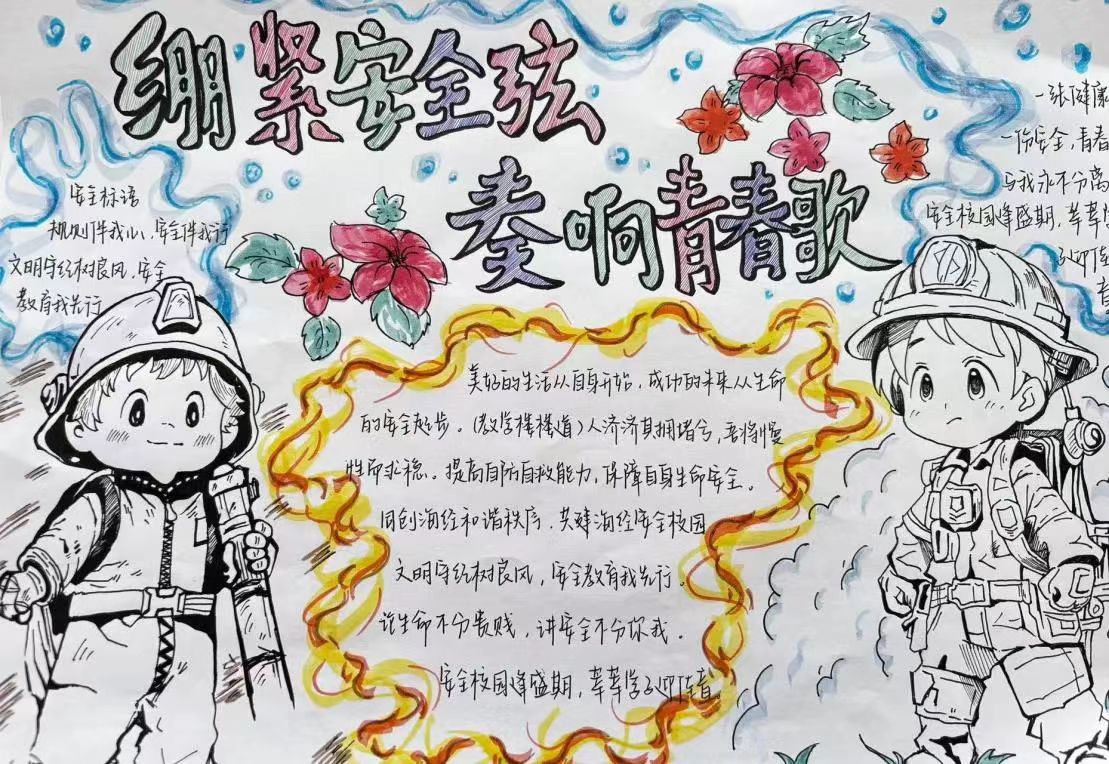 绷紧安全弦
奏响青春歌
安全标语
规则伴我心,安全伴我行
文明守纪树良风,安全
教育我先行
美好的生活从自身开始,成功的未来从生命
的安全起步。(教学楼楼道)人济济其拥堵兮,吾将慢
性而求稳。提高自防自救能力,保障自身生命安全。
同创海经和谐秩序,共建海经安全校园
文明守纪树良风,安全教育我先行。
说生命不分贵贱,讲安全不分你我。
安全校园逢盛期,莘莘学子迎佳音。
一张健康
一份安全,青春
与我永不分离
安全校园逢盛期,莘莘
子迎佳
音